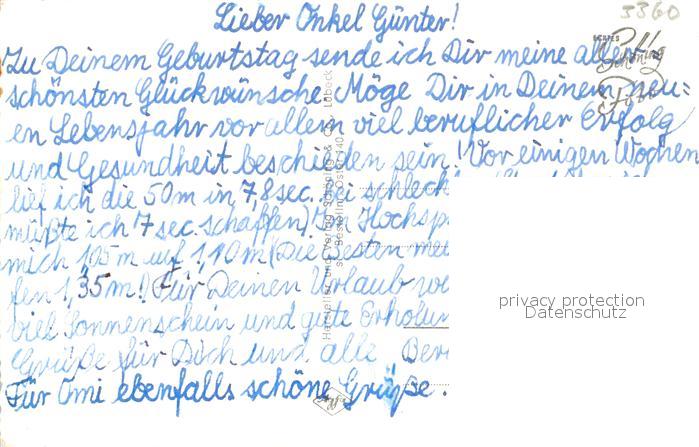 Lieber Onkel Günter!
3360
Zu Deinem Geburtstag sende ich Dir meine aller-
schönsten Glückwünsche. Möge Dir in Deinem neu=
en Lebensjahr vor allem viel beruflicher Erfolg
und Gesundheit beschieden sein! Vor einigen Wochen
lief ich die 50m in 7,8 sec. bei schlech
müßte ich 7 sec. schaffen) Im Hochsp
mich 105m auf 1,10m (Die Besten
fen 1,35m!) Für Deinen Urlaub
viel Sonnenschein und gute Erholun
Grüße für Dich und alle Ber
Für Omi ebenfalls schöne Grüße.
privacy protection
Datenschutz
Agfa